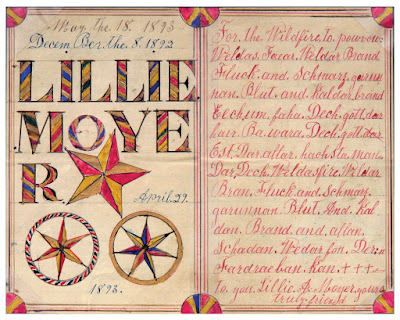 May the 18. 1893
Decem Ber the 8. 1892
LILLIE
MOYE
R
April 29.
1893.
For. the Wildfire. to. pour. our
Weldas. Focar. Weldar Brand
Fluck. and. Schmarz. garun
nan. Blut. and Kaldar. brand
Eechum. faha. Deck. gott. dar
fair. Ba. wara. Deck. gott. dar
Est. Dar. allar. huch sta. man
Dar. Deck. Weldas fire. Weldar
Bran. Fluck. and. Schmarz.
garunnan. Blut. And. Kal
dan. Brand. and. allan.
Schadan. Wedar fon. Deren
Fardraeban. Kan. +++
to you. Lillie. A. Moyer. yours
truly friend